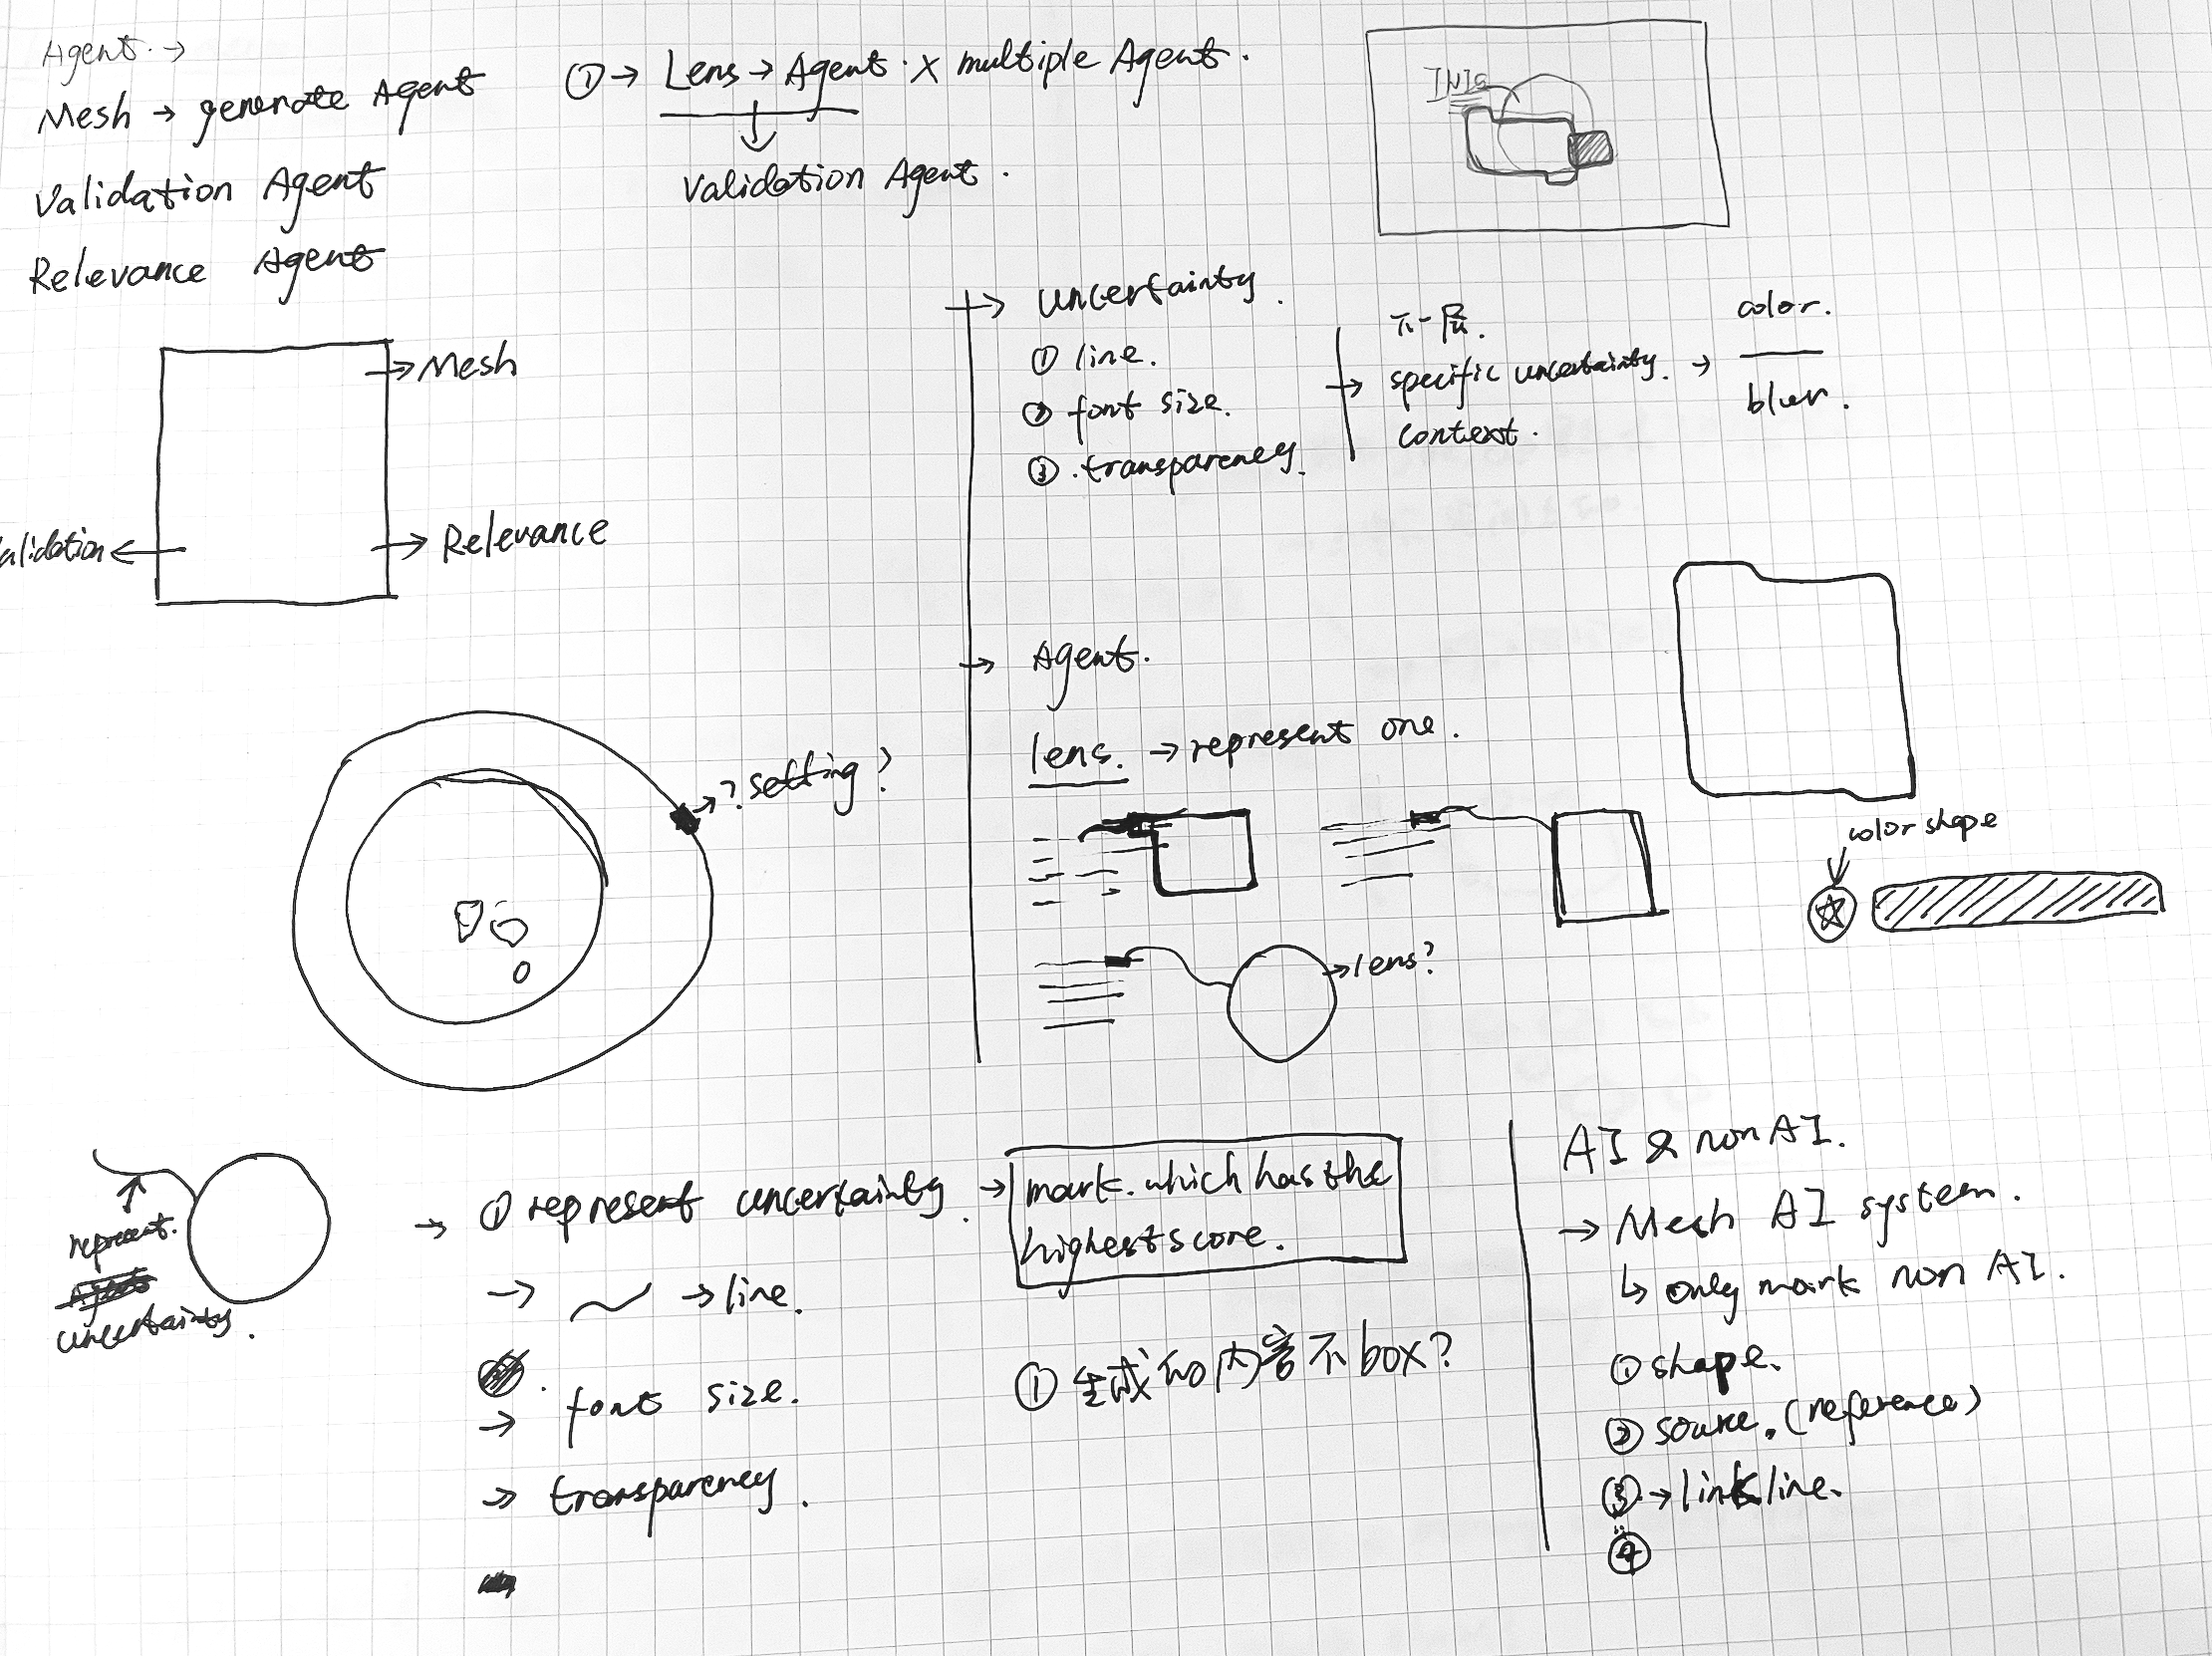 Agent. →
Mesh → generate Agent
Validation Agent
Relevance Agent
① → Lens → Agent. × multiple Agent.
Validation Agent.
→ Mesh
alidation ←
→ Relevance
→ uncertainty.
① line.
② font size.
③ .transparency.
下一层.
→ specific uncertainty. →
context.
color.
blur.
→ Agent.
lens. → represent one.
→ ? setting?
→ lens?
color shape
represent.
uncertainty.
→ ① represent uncertainty. →
mark. which has the
highest score.
→ → line.
→ font size.
→ transparency.
① 生成的内容不box?
AI & non AI.
→ Mesh AI system.
↳ only mark non AI.
① shape.
② source. (reference)
③ → link line.
④